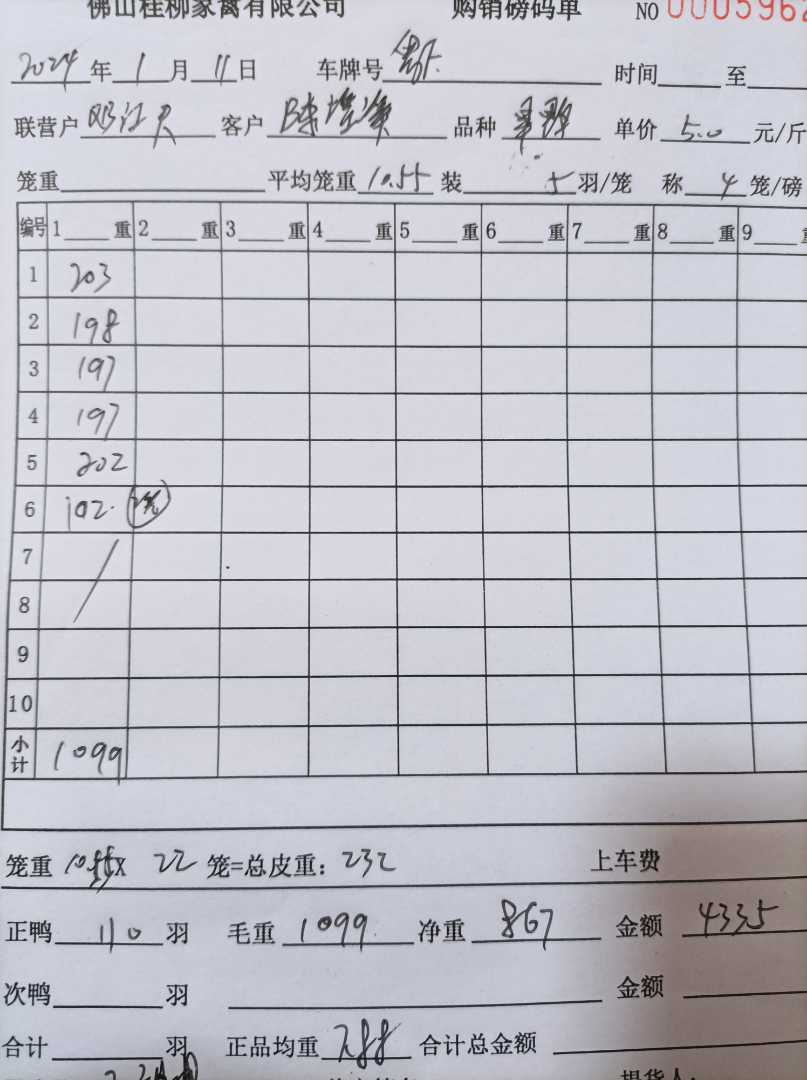 佛山桂柳家禽有限公司 购销磅码单 NO 0005962
2024年1月11日 车牌号 时间 至
联营户邓江 客户陈 品种 单价5.0元/斤
笼重 平均笼重10.55装5羽/笼 称4笼/磅
编号 1 重 2 重 3 重 4 重 5 重 6 重 7 重 8 重 9 重
1 203
2 198
3 197
4 197
5 202
6 102.
7
8
9
10
小计 1099
笼重10.55X 22笼=总皮重:232 上车费
正鸭110羽 毛重1099 净重867 金额4335
次鸭 羽 金额
合计 羽 正品均重7.88 合计总金额
提货人: